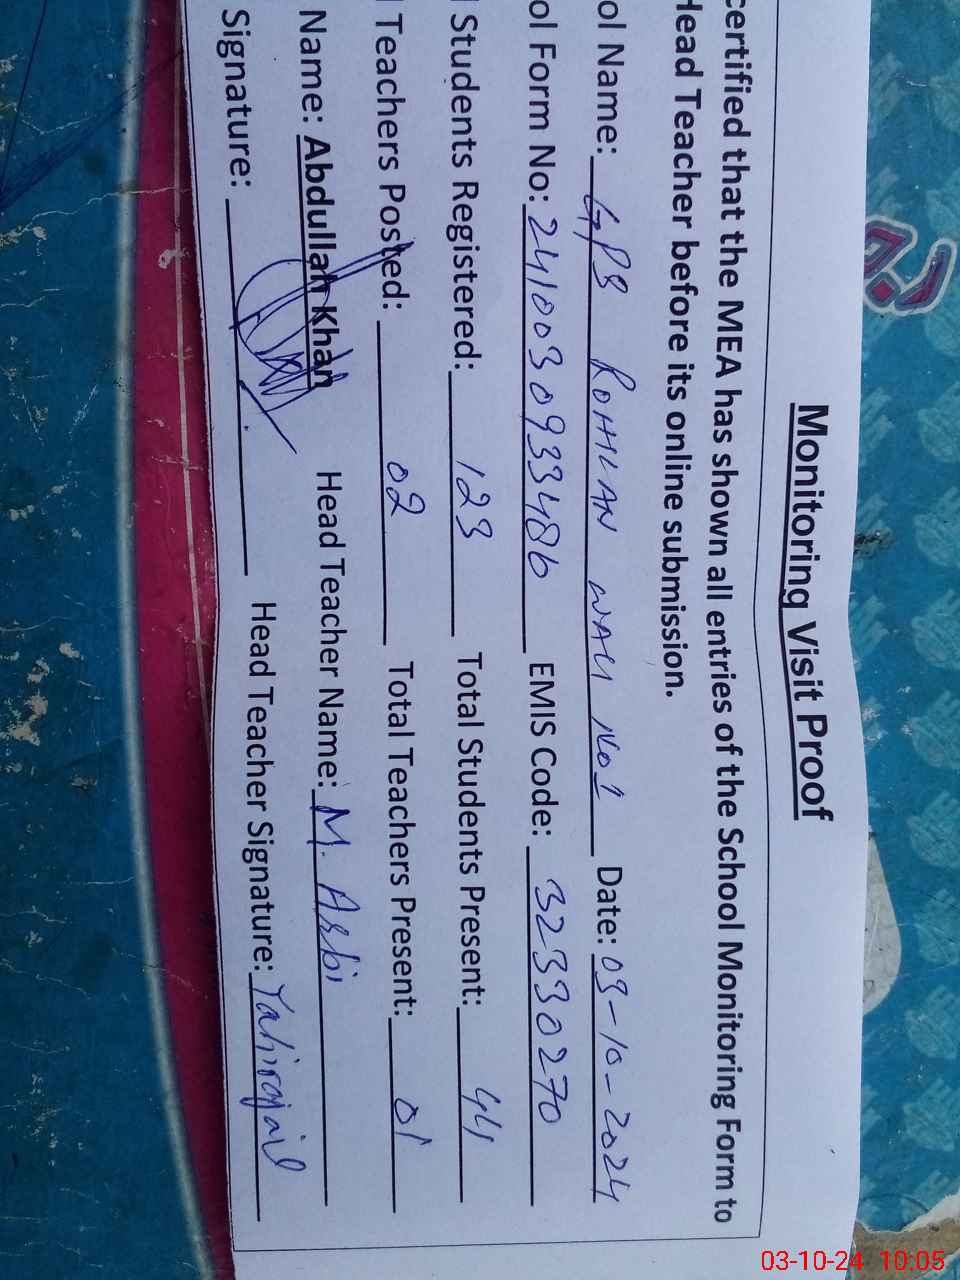 Monitoring Visit Proof
certified that the MEA has shown all entries of the School Monitoring Form to
Head Teacher before its online submission.
ol Name: GPS ROHILAN WALI No1 Date: 03-10-2024
ol Form No: 2410030933486 EMIS Code: 32330270
l Students Registered: 123 Total Students Present: 44
l Teachers Posted: 02 Total Teachers Present: 01
Name: Abdullah Khan Head Teacher Name: M. Asbi
Signature: Head Teacher Signature:
03-10-24 10:05